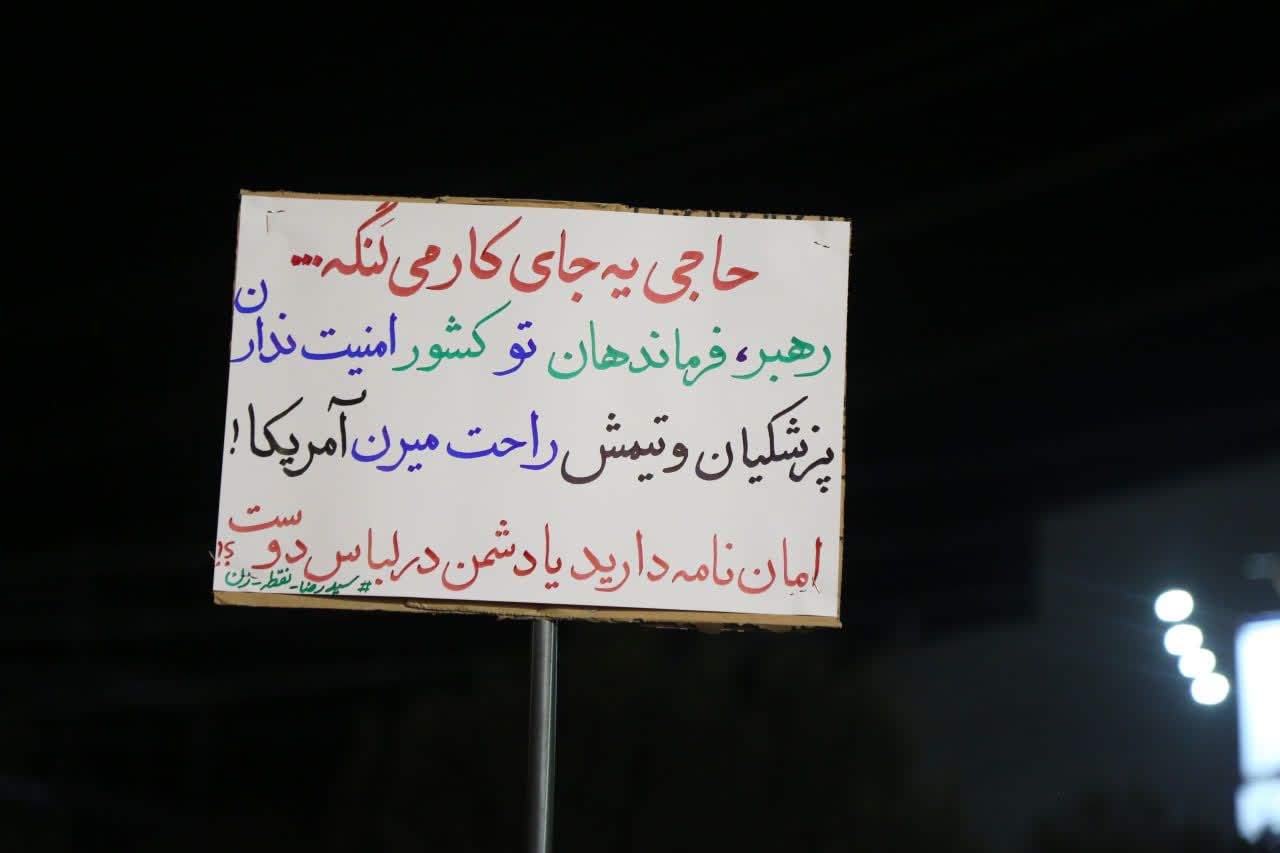 حاجی یه جای کار می لَنگه...
رهبر، فرماندهان تو کشور امنیت ندارن
پزشکیان و تیمش راحت میرن آمریکا!
امان نامه دارید یا دشمن در لباس دوست؟!
#سیدرضا_نقطه_زن